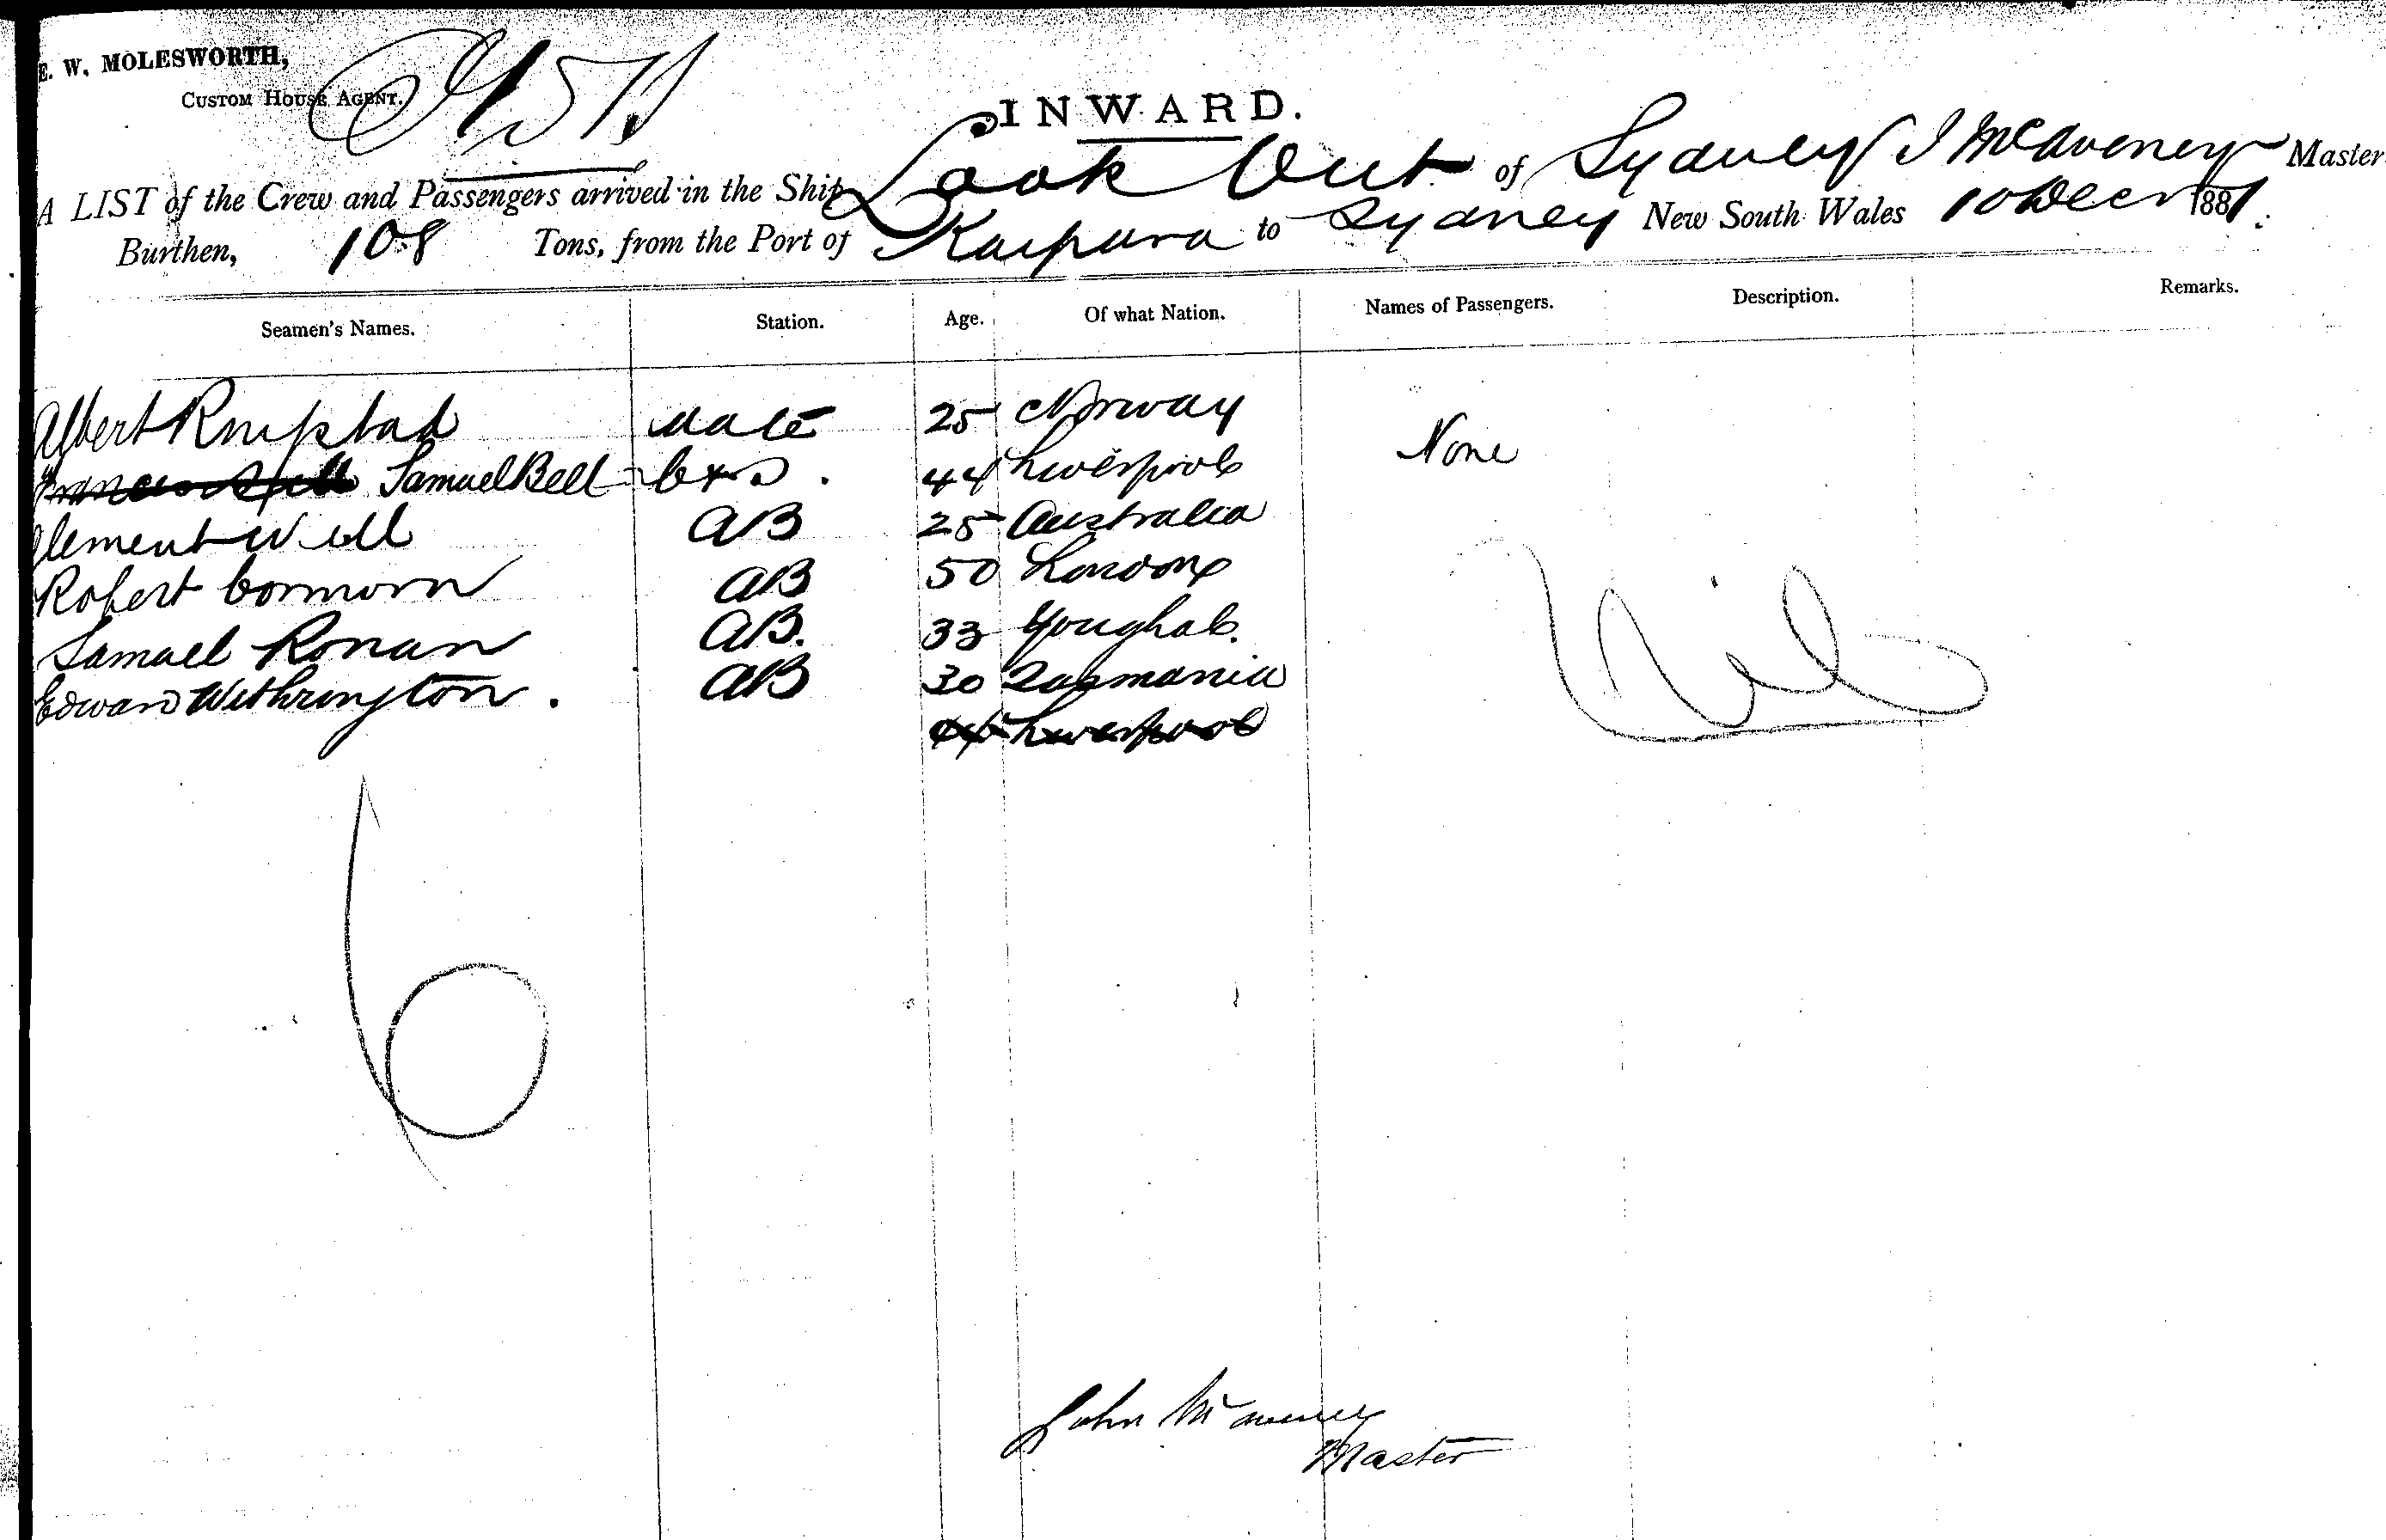 E. W. MOLESWORTH,
CUSTOM HOUSE AGENT.
INWARD.
A LIST of the Crew and Passengers arrived in the Ship Look Out of Sydney J McAveney Master
Burthen, 108 Tons, from the Port of Kaipara to Sydney New South Wales 10 Decr 1881.
Seamen's Names. Station. Age. Of what Nation. Names of Passengers. Description. Remarks.
Albert Mate 25 Norway None
Samuel Bell C & S. 44 Liverpool
Clement Well AB 25 Australia
Robert AB 50 London
Samuel Ronan AB. 33 Youghal.
Edward Withrington. AB 30 Tasmania
44 Liverpool
Nil
6
John McAveney
Master